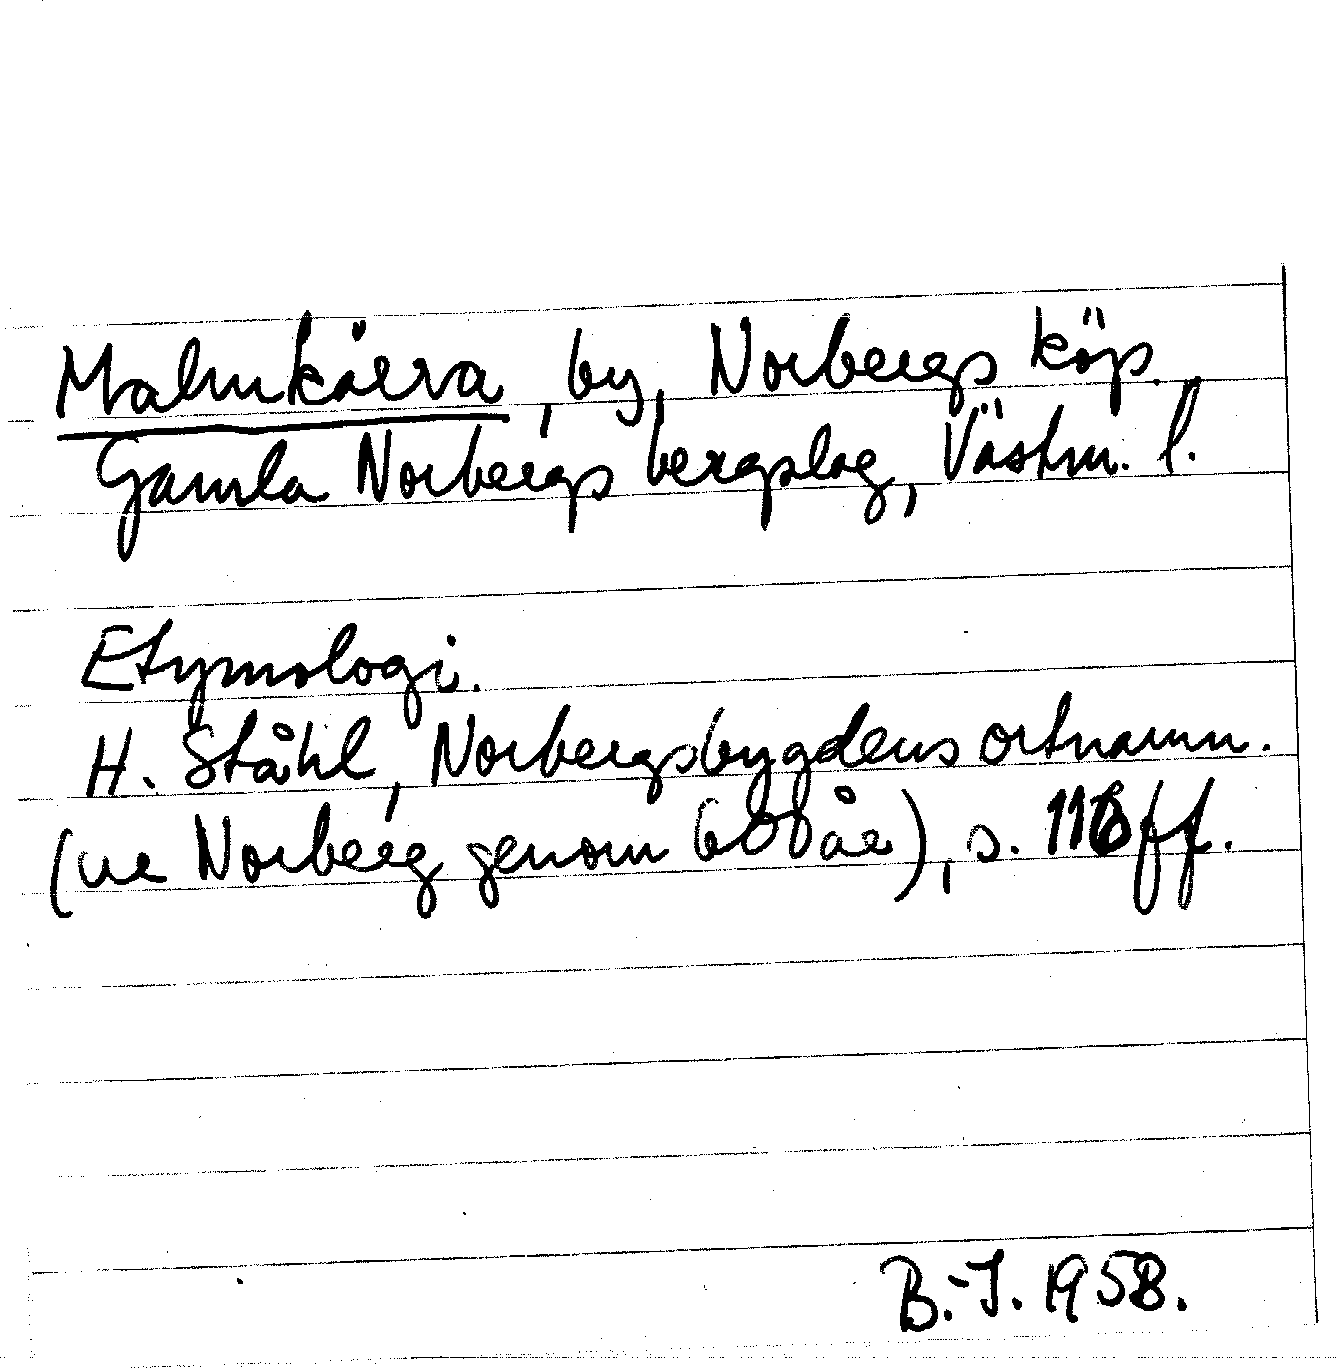 Malmkärra, by, Norbergs köp.
Gamla Norbergs bergslag, Västm. l.
Etymologi.
H. Ståhl, Norbergsbygdens ortnamn.
(ur Norberg genom 600 år), s. 116 ff.
B.-J. 1958.